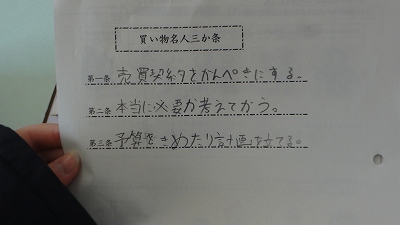 買い物名人三か条
第一条 売買契約をかんぺきにする。
第二条 本当に必要か考えてかう。
第三条 予算をきめたり計画を立てる。